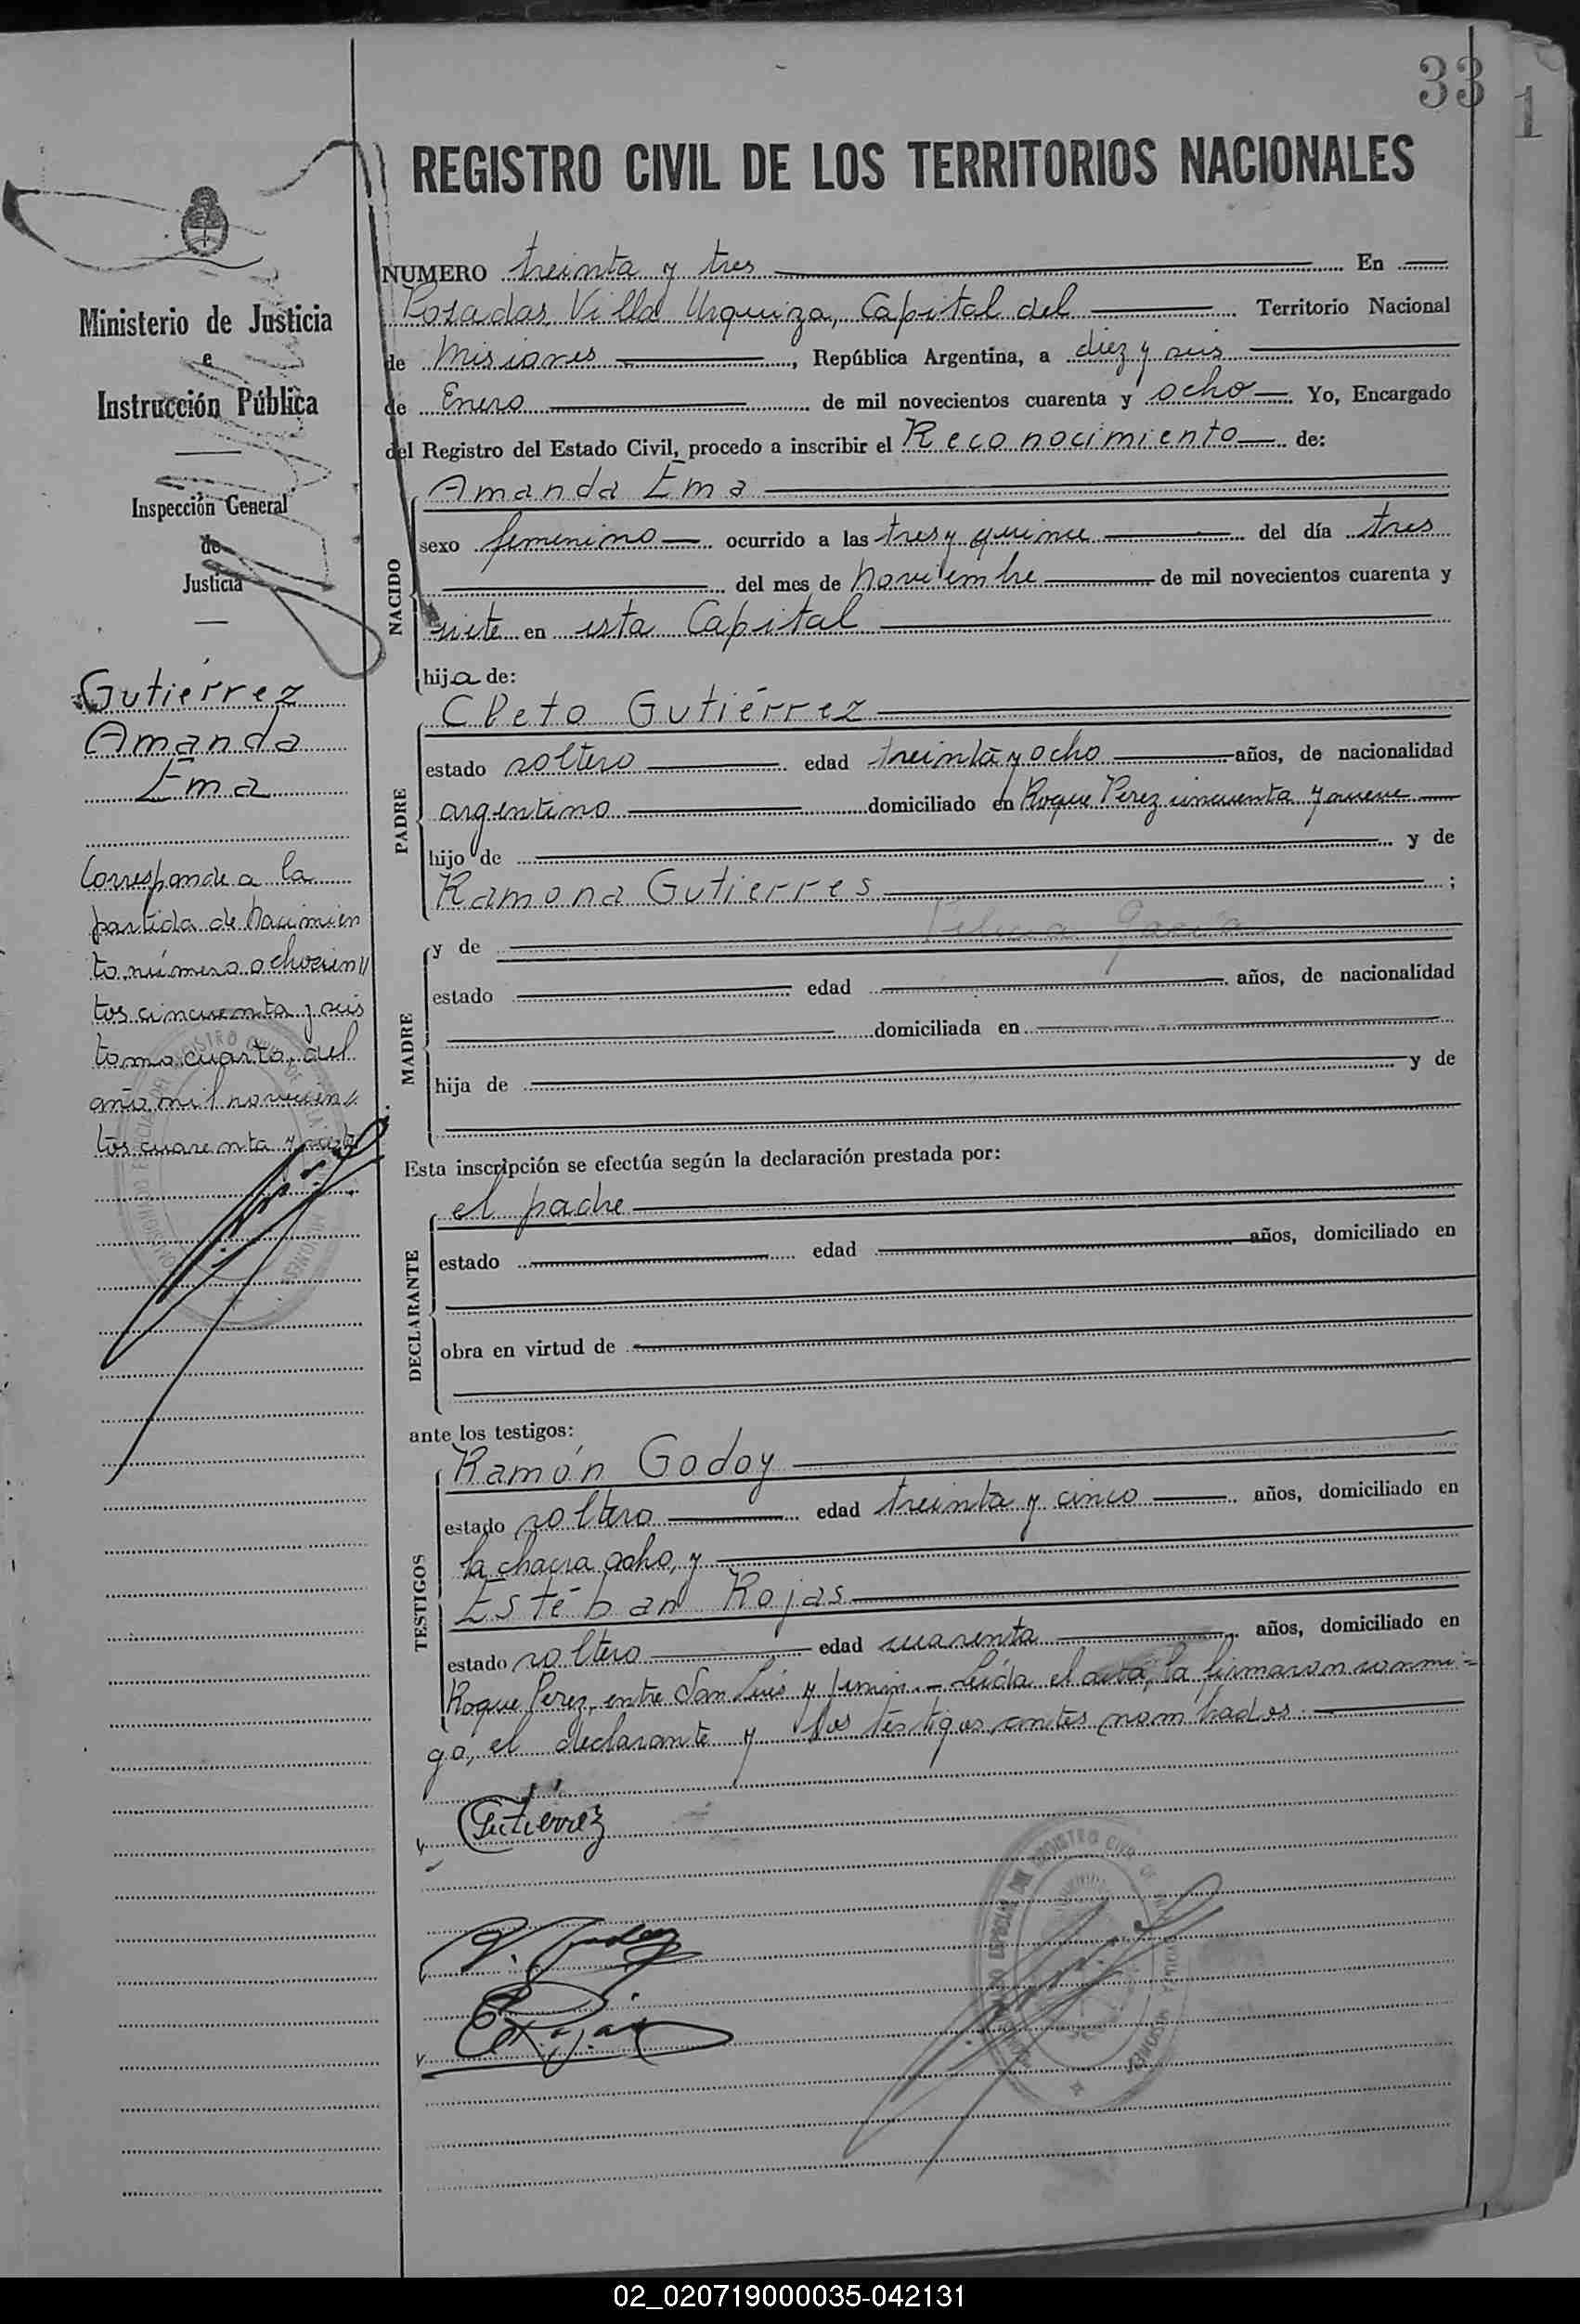 33
1
REGISTRO CIVIL DE LOS TERRITORIOS NACIONALES
Ministerio de Justicia
e
Instrucción Pública
Inspección General
de
Justicia
Gutiérrez
Amanda
Ema
Corresponde a la
partida de Nacimien
to número ochocien//
tos cincuenta y seis
tomo cuarto, del
año mil novecien//
tos cuarenta y siete
NUMERO treinta y tres En
Posadas, Villa Urquiza, Capital del Territorio Nacional
de Misiones, República Argentina, a diez y seis
de Enero de mil novecientos cuarenta y ocho Yo, Encargado
del Registro del Estado Civil, procedo a inscribir el Reconocimiento de:
NACIDO
Amanda Ema
sexo femenino ocurrido a las tres y quince del día tres
del mes de Noviembre de mil novecientos cuarenta y
siete en esta Capital
hija de:
PADRE
Cleto Gutiérrez
estado soltero edad treinta y ocho años, de nacionalidad
argentino domiciliado en Roque Perez cincuenta y nueve
hijo de y de
Ramona Gutierres ;
MADRE
y de
estado edad años, de nacionalidad
domiciliada en
hija de y de
Esta inscripción se efectúa según la declaración prestada por:
DECLARANTE
el padre
estado edad años, domiciliado en
obra en virtud de
ante los testigos:
TESTIGOS
Ramón Godoy
estado soltero edad treinta y cinco años, domiciliado en
la chacra ocho, y
Estéban Rojas
estado soltero edad cuarenta años, domiciliado en
Roque Perez, entre San Luis y Junin.- Leída el acta, la firmaron conmi=
go, el declarante y los testigos antes nombrados.
Gutiérrez
R. Godoy
E. Rojas
02_020719000035-042131